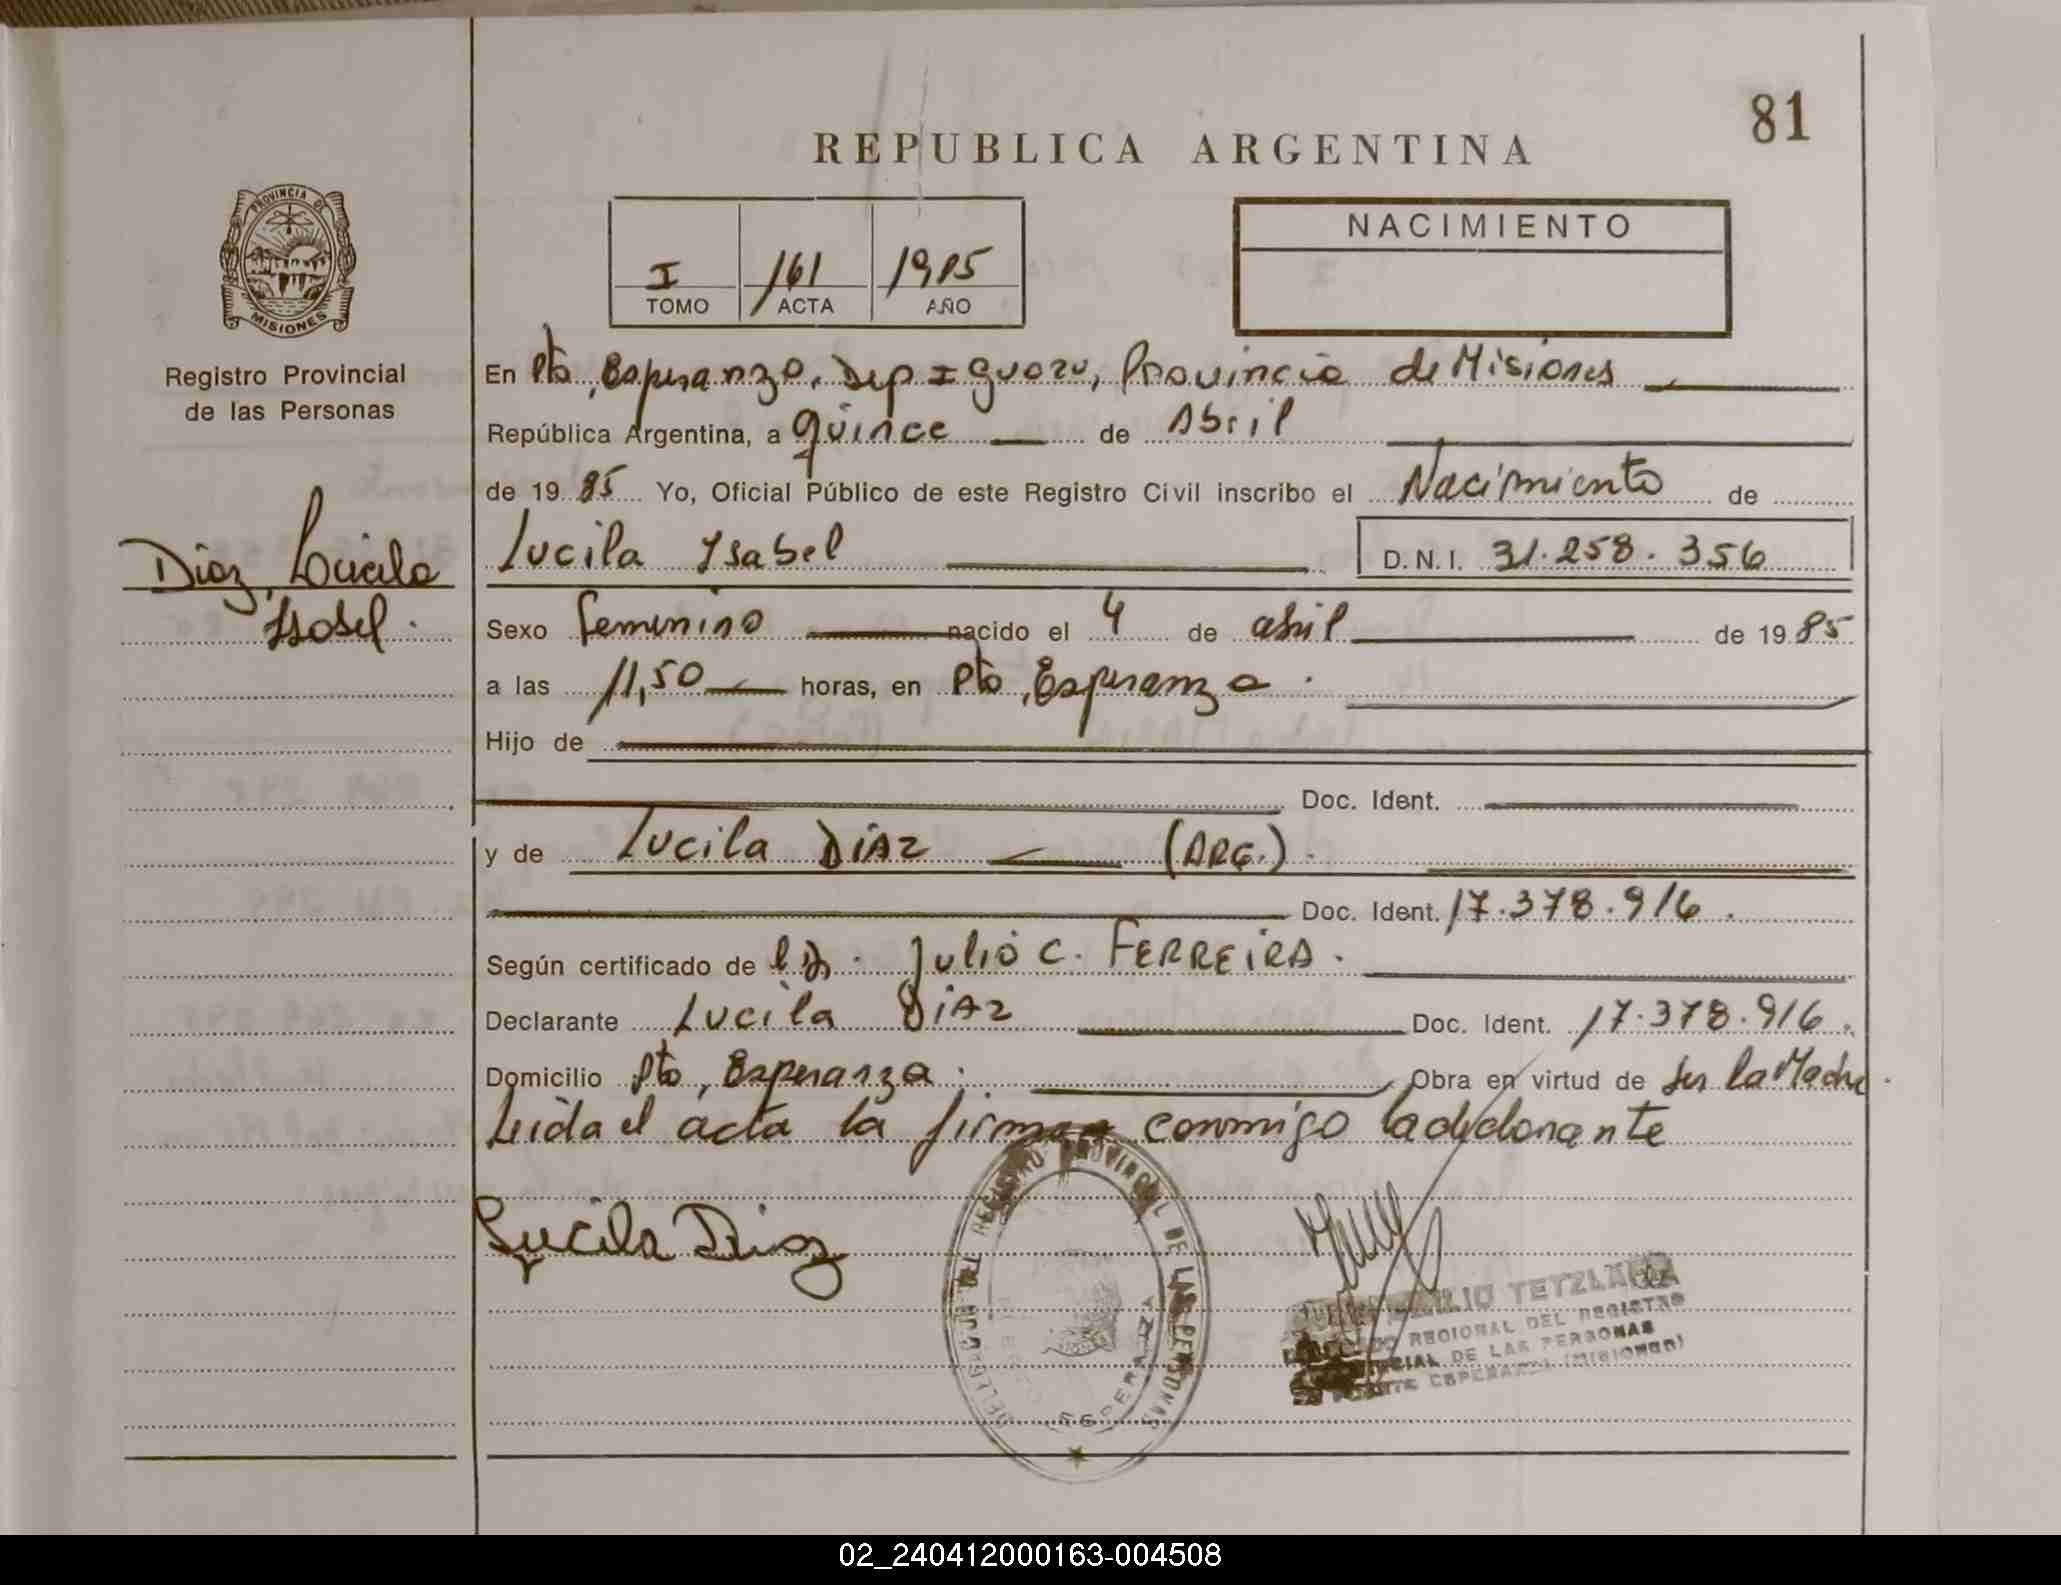 81
REPUBLICA ARGENTINA
PROVINCIA DE
MISIONES
Registro Provincial
de las Personas
I TOMO
161 ACTA
1985 AÑO
NACIMIENTO
En Pto, Esperanza, Dep Iguazu, Provincia de Misiones
República Argentina, a quince de Abril
de 19 85 Yo, Oficial Público de este Registro Civil inscribo el Nacimiento de
Diaz, Lucila
Isabel.
Lucila Ysabel D.N.I. 31.258.356
Sexo femenino nacido el 4 de abril de 19 85
a las 11,50 horas, en Pto, Esperanza.
Hijo de
Doc. Ident.
y de Lucila DiAz (ARG.).
Doc. Ident. 17.378.916.
Según certificado de Julio C. FERREiRA.
Declarante Lucila DiAz Doc. Ident. 17.378.916.
Domicilio Pto, Esperanza. Obra en virtud de ser la Madre.
Leida el acta la firma conmigo la declarante
Lucila Diaz
REGISTRO PROVINCIAL DE LAS PERSONAS
ESPERANZA
TETZLAFF
REGIONAL DEL REGISTRO
DE LAS PERSONAS
ESPERANZA (MISIONES)
02_240412000163-004508